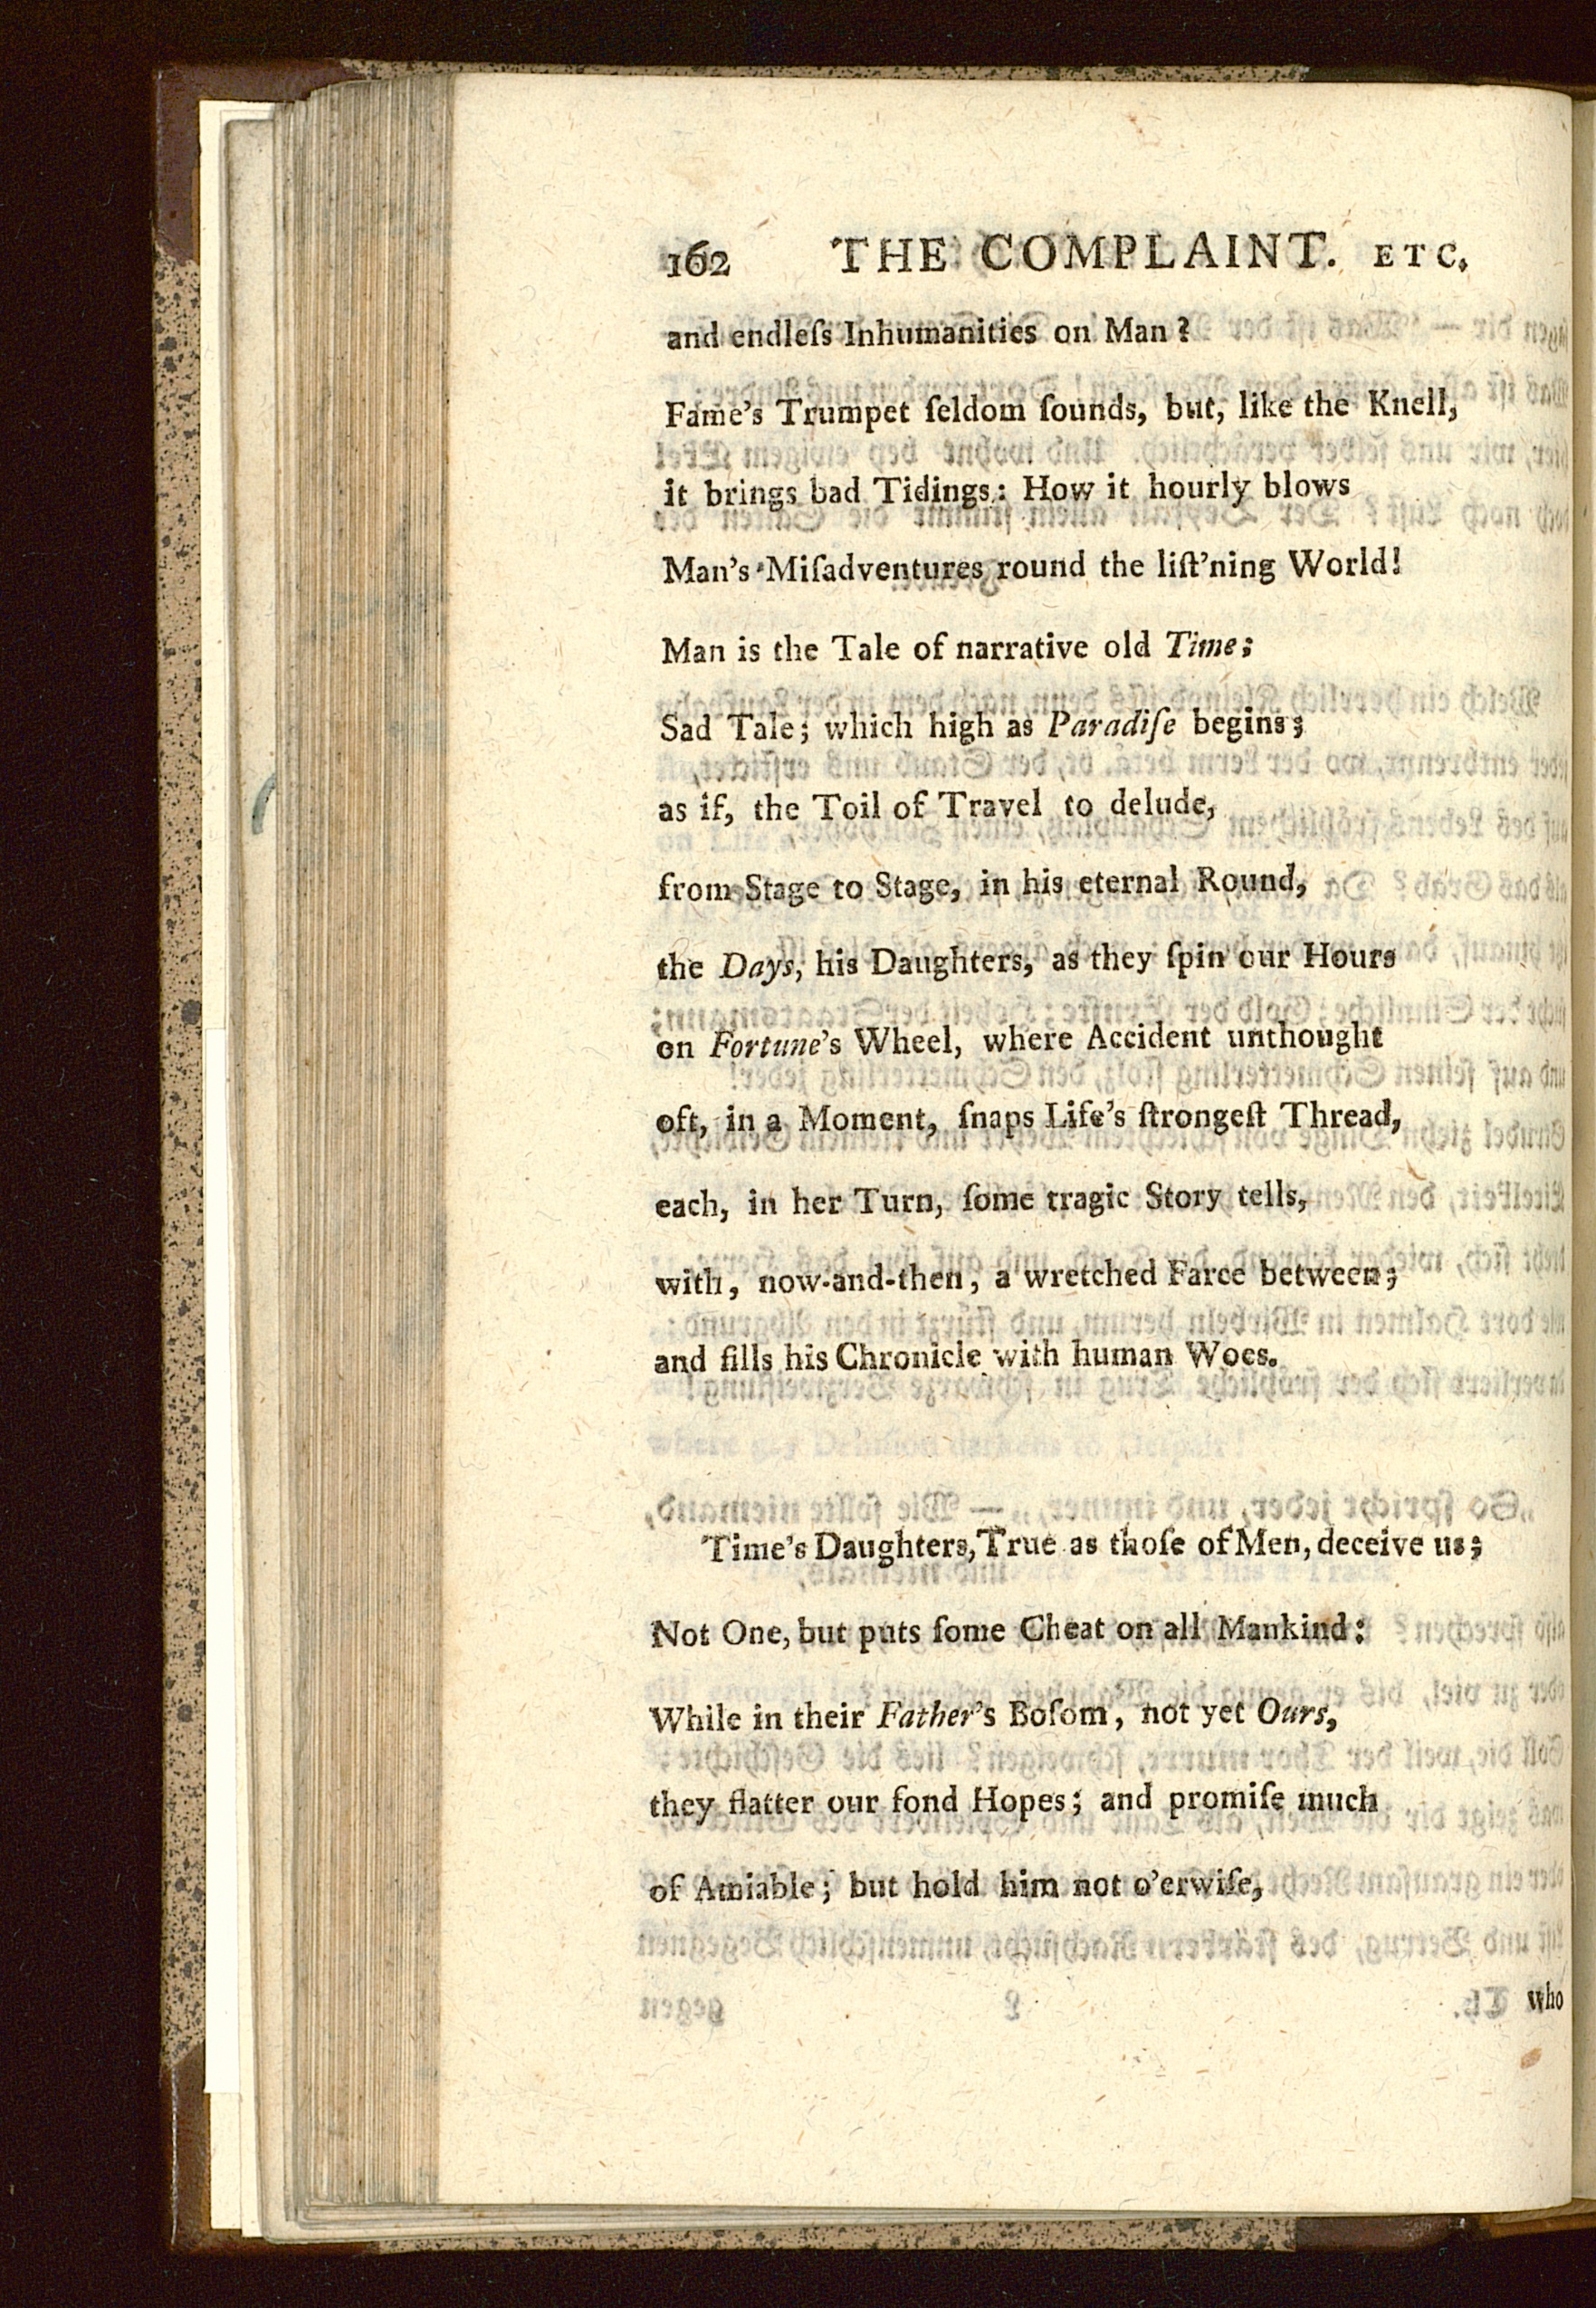 162 THE COMPLAINT. ETC.
and endleſs Inhumanities on Man?
Fame's Trumpet ſeldom ſounds, but, like the Knell,
it brings bad Tidings: How it hourly blows
Man's Miſadventures round the liſt'ning World!
Man is the Tale of narrative old Time;
Sad Tale; which high as Paradiſe begins;
as if, the Toil of Travel to delude,
from Stage to Stage, in his eternal Round,
the Days, his Daughters, as they ſpin our Hours
on Fortune's Wheel, where Accident unthought
oft, in a Moment, ſnaps Life's ſtrongeſt Thread,
each, in her Turn, ſome tragic Story tells,
with, now-and-then, a wretched Farce between;
and fills his Chronicle with human Woes.
Time's Daughters, True as thoſe of Men, deceive us;
Not One, but puts ſome Cheat on all Mankind:
While in their Father's Boſom, not yet Ours,
they flatter our fond Hopes; and promiſe much
of Amiable; but hold him not o'erwiſe,
who